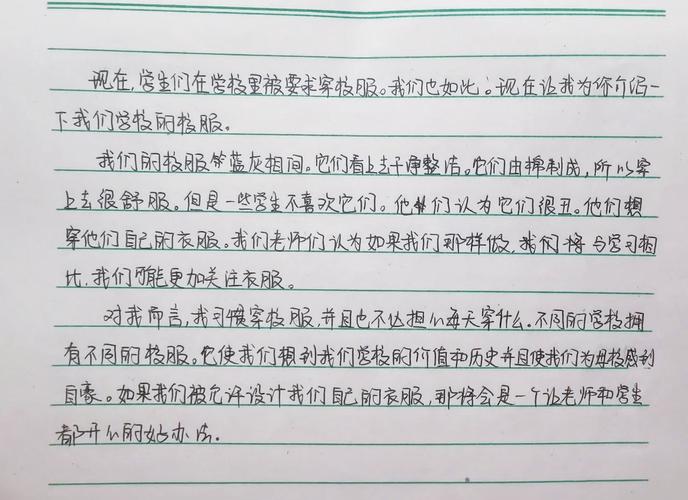 现在,学生们在学校里被要求穿校服。我们也如此。现在让我为你介绍一
下我们学校的校服。
我们的校服蓝灰相间。它们看上去干净整洁。它们由棉制成,所以穿
上去很舒服。但是一些学生不喜欢它们。他们认为它们很丑。他们想
穿他们自己的衣服。我们老师们认为如果我们那样做,我们将与学习相
比,我们可能更加关注衣服。
对我而言,我习惯穿校服,并且也不必担心每天穿什么.不同的学校拥
有不同的校服。它使我们想到我们学校的价值和历史并且使我们为母校感到
自豪。如果我们被允许设计我们自己的衣服,那将会是一个让老师和学生
都开心的好办法.